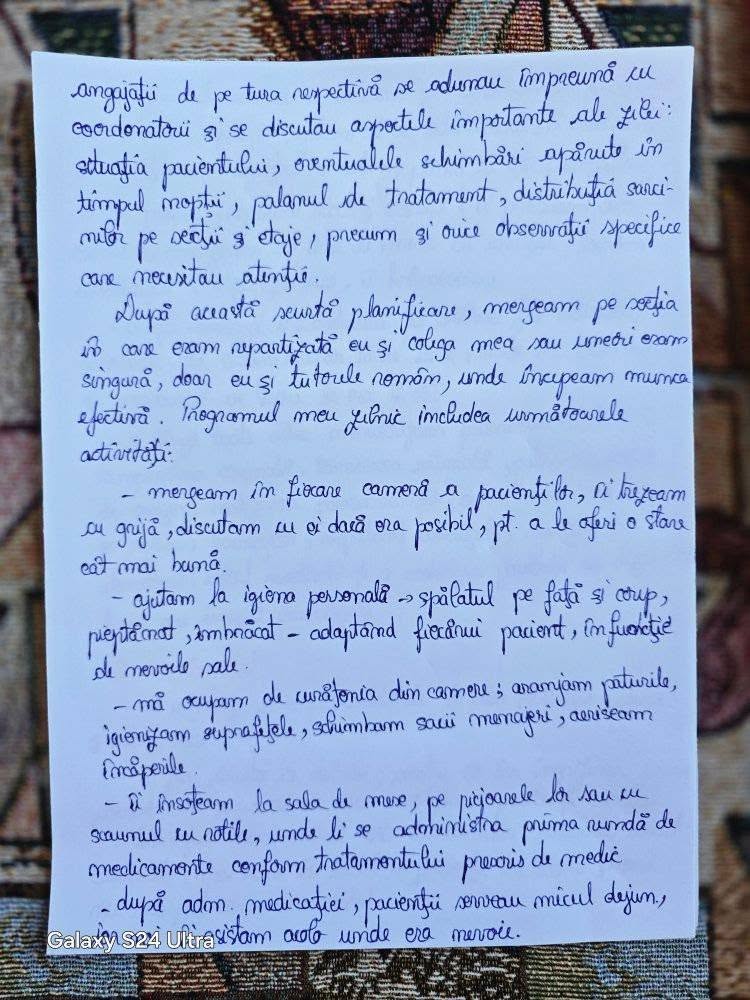 angajații de pe tura respectivă se adunau împreună cu
coordonatorii și se discutau aspectele importante ale zilei:
situația pacientului, eventualele schimbări apărute în
timpul nopții, palanul de tratament, distribuția sarci-
nilor pe secții și etaje, precum și orice observații specifice
care necesitau atenție.
După această scurtă planificare, mergeam pe secția
în care eram repartizată eu și colega mea sau uneori eram
singură, doar eu și tutorele român, unde începeam munca
efectivă. Programul meu zilnic includea următoarele
activități:
- mergeam în fiecare cameră a pacienților, îi trezeam
cu grijă, discutam cu ei dacă era posibil, pt. a le oferi o stare
cât mai bună.
- ajutam la igiena personală → spălatul pe față și corp,
pieptănat, îmbrăcat - adaptând fiecărui pacient, în funcție
de nevoile sale.
- mă ocupam de curățenia din camere; aranjam paturile,
igienizam suprafețele, schimbam sacii menajeri, aeriseam
încăperile.
- îi însoțeam la sala de mese, pe picioarele lor sau cu
scaunul cu rotile, unde li se administra prima rundă de
medicamente conform tratamentului prescris de medic
- după adm. medicației, pacienții serveau micul dejun,
asistam acolo unde era nevoie.
Galaxy S24 Ultra